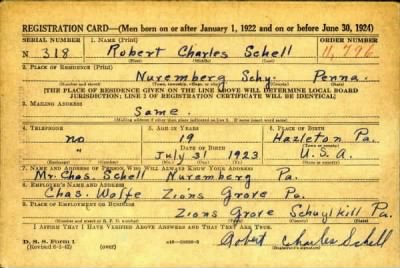 REGISTRATION CARD—(Men born on or after January 1, 1922 and on or before June 30, 1924)
SERIAL NUMBER 1. NAME (Print) ORDER NUMBER
N 318 Robert Charles Schell 11,796
(First) (Middle) (Last)
2. PLACE OF RESIDENCE (Print)
Nuremberg Schu. Penna.
(Number and street) (Town, township, village, or city) (County) (State)
[THE PLACE OF RESIDENCE GIVEN ON THE LINE ABOVE WILL DETERMINE LOCAL BOARD
JURISDICTION; LINE 2 OF REGISTRATION CERTIFICATE WILL BE IDENTICAL]
3. MAILING ADDRESS
Same.
[Mailing address if other than place indicated on line 2. If same insert word same]
4. TELEPHONE 5. AGE IN YEARS 6. PLACE OF BIRTH
no 19 Hazleton Pa.
DATE OF BIRTH
" July 31 1923 U.S.A.
7. NAME AND ADDRESS OF PERSON WHO WILL ALWAYS KNOW YOUR ADDRESS
Mr. Chas. Schell Nuremberg Pa.
8. EMPLOYER'S NAME AND ADDRESS
Chas. Wolfe Zions Grove Pa.
9. PLACE OF EMPLOYMENT OR BUSINESS
Zions Grove Schuylkill Pa.
(Number and street or R. F. D. number) (Town) (County) (State)
I AFFIRM THAT I HAVE VERIFIED ABOVE ANSWERS AND THAT THEY ARE TRUE.
D. S. S. Form 1
(Revised 6-9-42) (over)
Robert Charles Schell